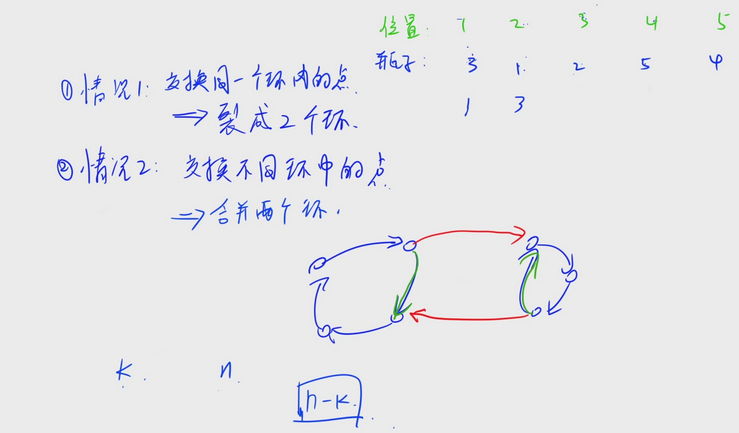 位置: 1 2 3 4 5
瓶子: 3 1 2 5 4
1 3
① 情况1: 交换同一个环内的点.
⇒ 裂成2个环.
② 情况2: 交换不同环中的点
⇒ 合并两个环.
k. n.
n-k.